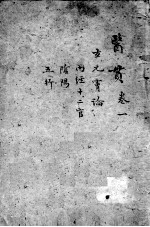 醫貫 卷一
玄元膚論
內经十二官
陰陽
五行